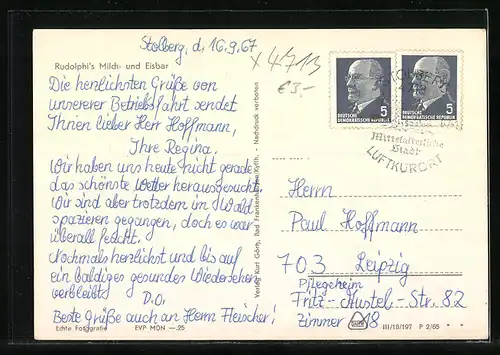 Stolberg, d. 16.9.67
Rudolphi's Milch- und Eisbar
Die herzlichsten Grüße von
unsererer Betriebsfahrt sendet
Ihnen lieber Herr Hoffmann,
Ihre Regina.
Wir haben uns heute nicht gerade
das schönste Wetter herausgesucht.
Wir sind aber trotzdem im Wald
spazieren gegangen, doch es war
überall feucht.
Nochmals herzlichst und bis auf
ein baldiges gesundes Wiedersehen
verbleibt D.O.
Beste Grüße auch an Herrn Fleischer!
Echte Fotografie EVP MDN —.25
Verlag Kurt Görth, Bad Frankenhausen/Kyffh. - Nachdruck verboten
x 4713
€3.-
DEUTSCHE
DEMOKRATISCHE REPUBLIK
5
DEUTSCHE
DEMOKRATISCHE REPUBLIK
5
Mittelalterliche
Stadt
LUFTKURORT
Herrn
Paul Hoffmann
703 Leipzig
Pflegeheim
Fritz-Austel-Str. 82
Zimmer 18
III/18/197 P 2/65